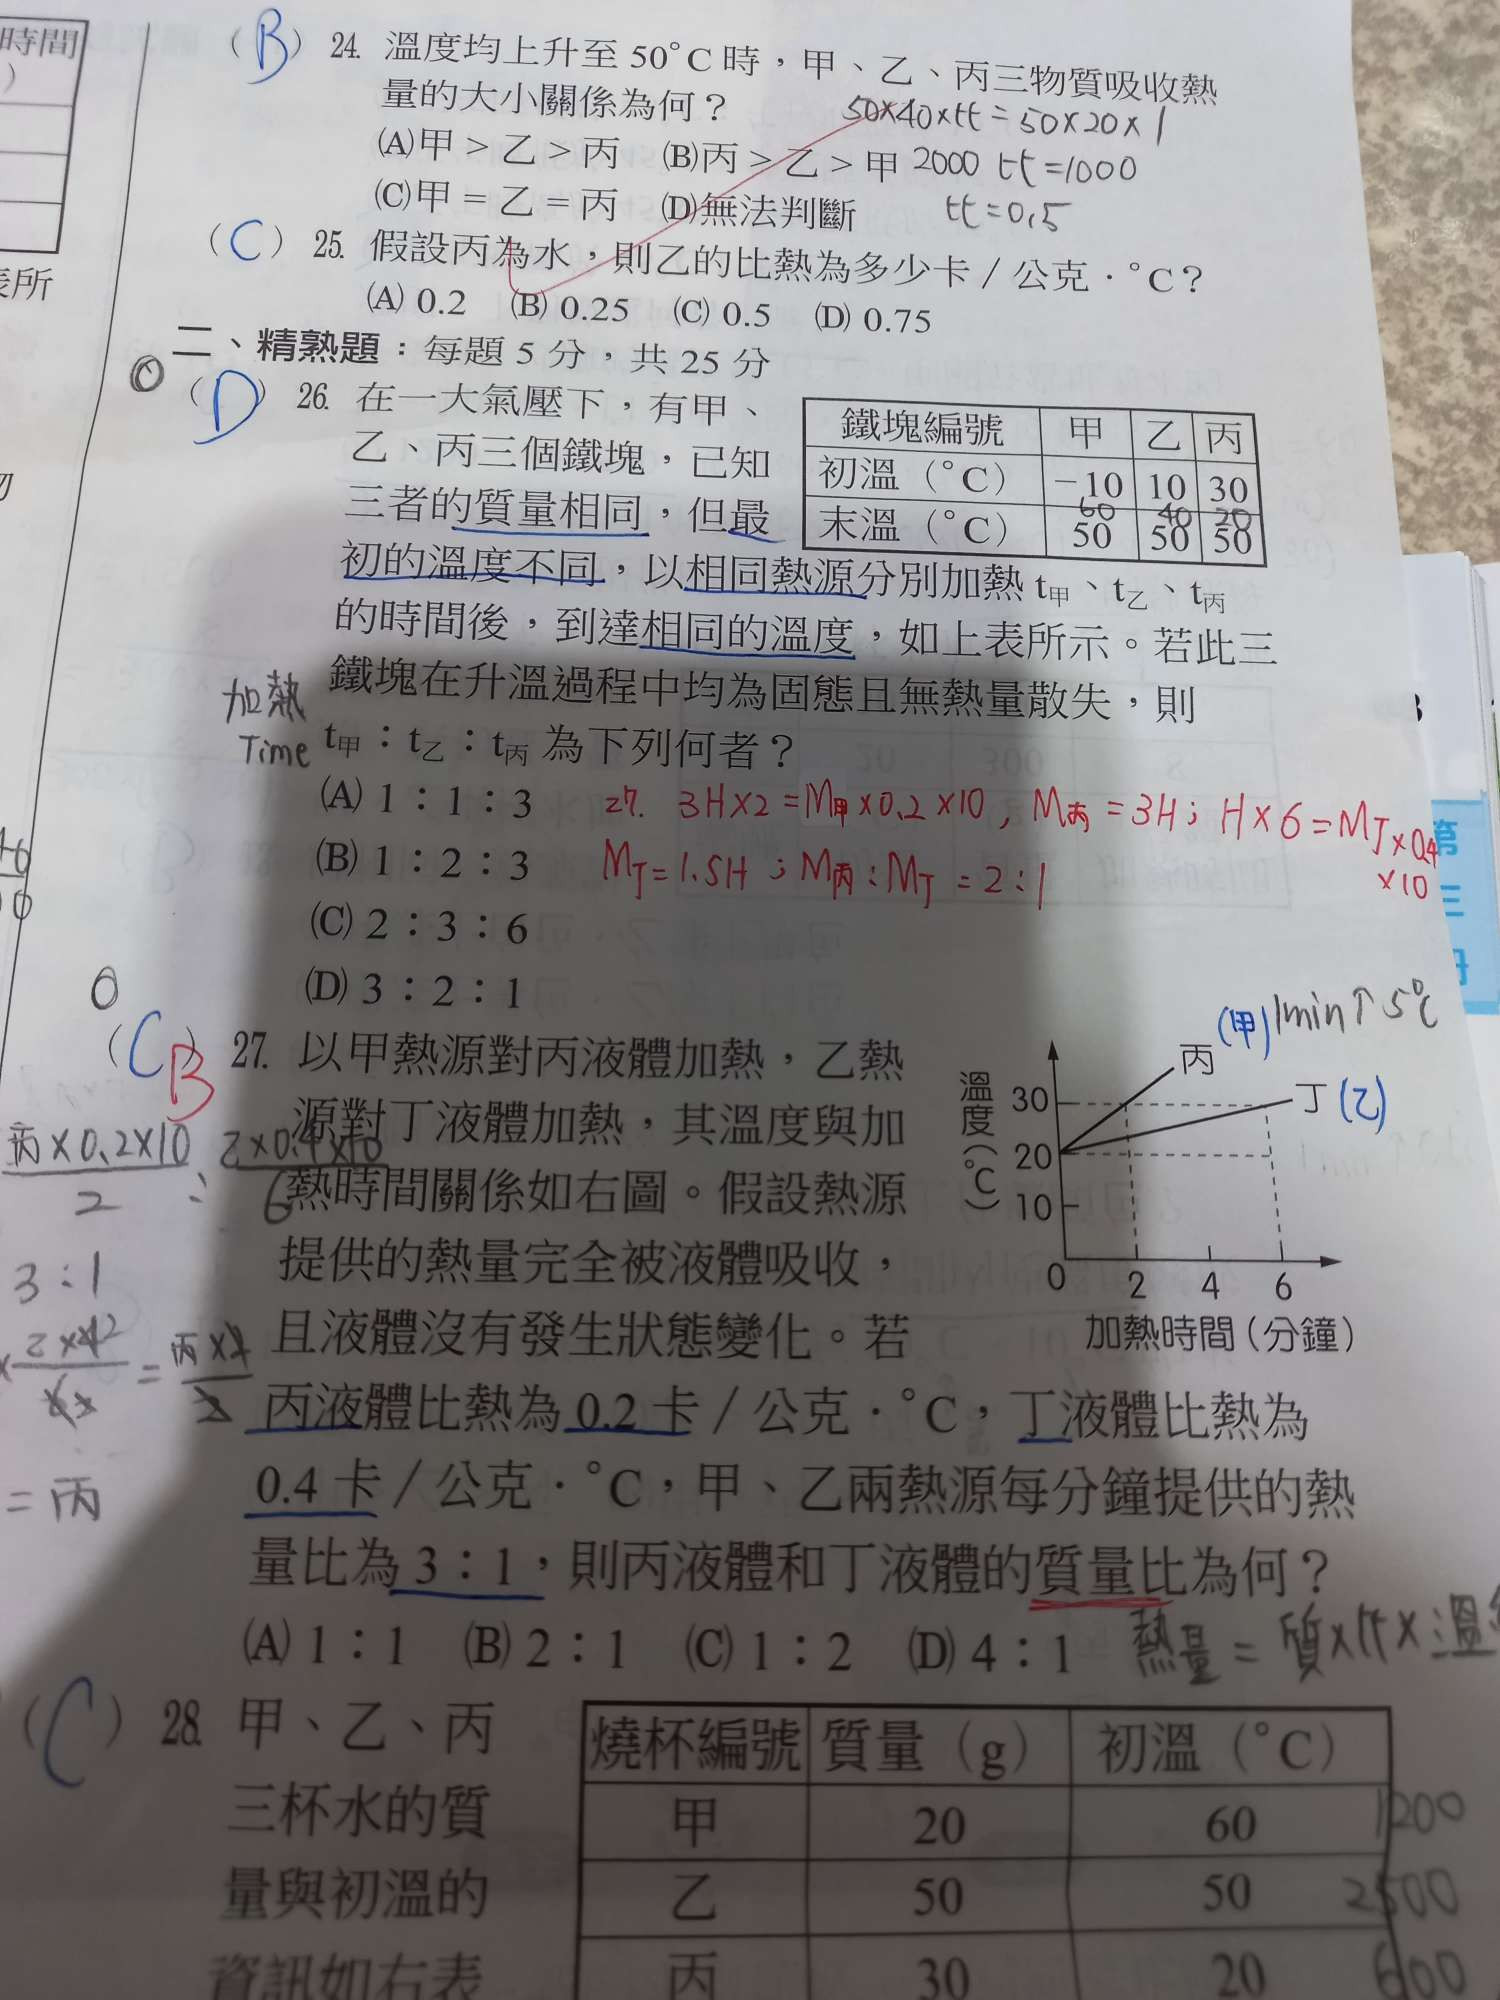 時間
)
表所
(B) 24. 溫度均上升至 50°C 時，甲、乙、丙三物質吸收熱
量的大小關係為何？
50×40×比=50×20×1
(A)甲 > 乙 > 丙 (B)丙 > 乙 > 甲
2000 比=1000
(C)甲 = 乙 = 丙 (D)無法判斷
比=0.5
(C) 25. 假設丙為水，則乙的比熱為多少卡／公克．°C？
(A) 0.2 (B) 0.25 (C) 0.5 (D) 0.75
二、精熟題：每題 5 分，共 25 分
(D) 26. 在一大氣壓下，有甲、
乙、丙三個鐵塊，已知
三者的質量相同，但最
初的溫度不同，以相同熱源分別加熱 t甲、t乙、t丙
的時間後，到達相同的溫度，如上表所示。若此三
鐵塊在升溫過程中均為固態且無熱量散失，則
t甲：t乙：t丙 為下列何者？
鐵塊編號 甲 乙 丙
初溫（°C） −10 10 30
60 40 20
末溫（°C） 50 50 50
加熱
Time
(A) 1：1：3
(B) 1：2：3
(C) 2：3：6
(D) 3：2：1
27. 3H×2=M甲×0.2×10, M丙=3H; H×6=M丁×0.4
×10
M丁=1.5H ; M丙:M丁=2:1
(C) B 27. 以甲熱源對丙液體加熱，乙熱
源對丁液體加熱，其溫度與加
熱時間關係如右圖。假設熱源
提供的熱量完全被液體吸收，
且液體沒有發生狀態變化。若
丙液體比熱為 0.2 卡／公克．°C，丁液體比熱為
0.4 卡／公克．°C，甲、乙兩熱源每分鐘提供的熱
量比為 3：1，則丙液體和丁液體的質量比為何？
(A) 1：1 (B) 2：1 (C) 1：2 (D) 4：1
熱量=質×比×溫
(甲) 1min↑5°C
丙
丁 (乙)
溫度(°C)
30
20
10
0 2 4 6
加熱時間(分鐘)
丙×0.2×10 : 乙×0.4×10
2 6
3:1
=丙
(C) 28. 甲、乙、丙
三杯水的質
量與初溫的
資訊如右表
燒杯編號 質量（g） 初溫（°C）
甲 20 60 1200
乙 50 50 2500
丙 30 20 600
第
三
冊